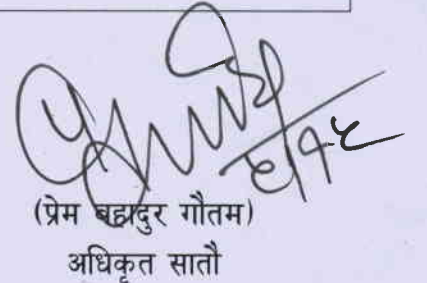 ६।१५
(प्रेम बहादुर गौतम)
अधिकृत सातौ